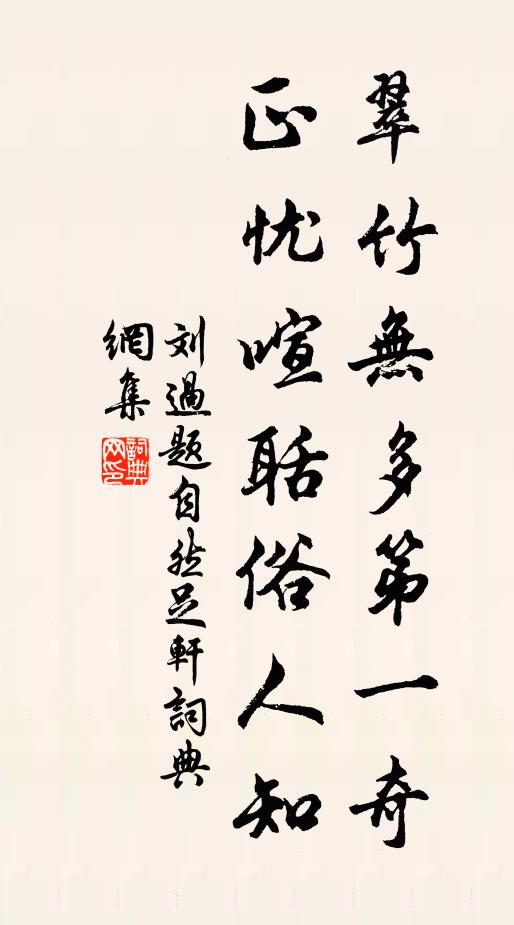 翠竹無多第一奇
正忧喧聒俗人知
刘過題自然足軒詞典
網集
詞典网印